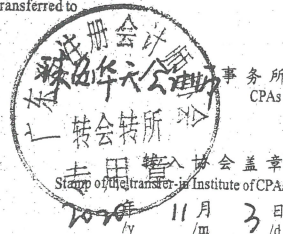 ransferred to
广东省注册会计师协会
事务所
CPAs
转会转所
专用章
转入协会盖章
Stamp of the transfer-in Institute of CPA
2020年 11月 3日
/y /m /d